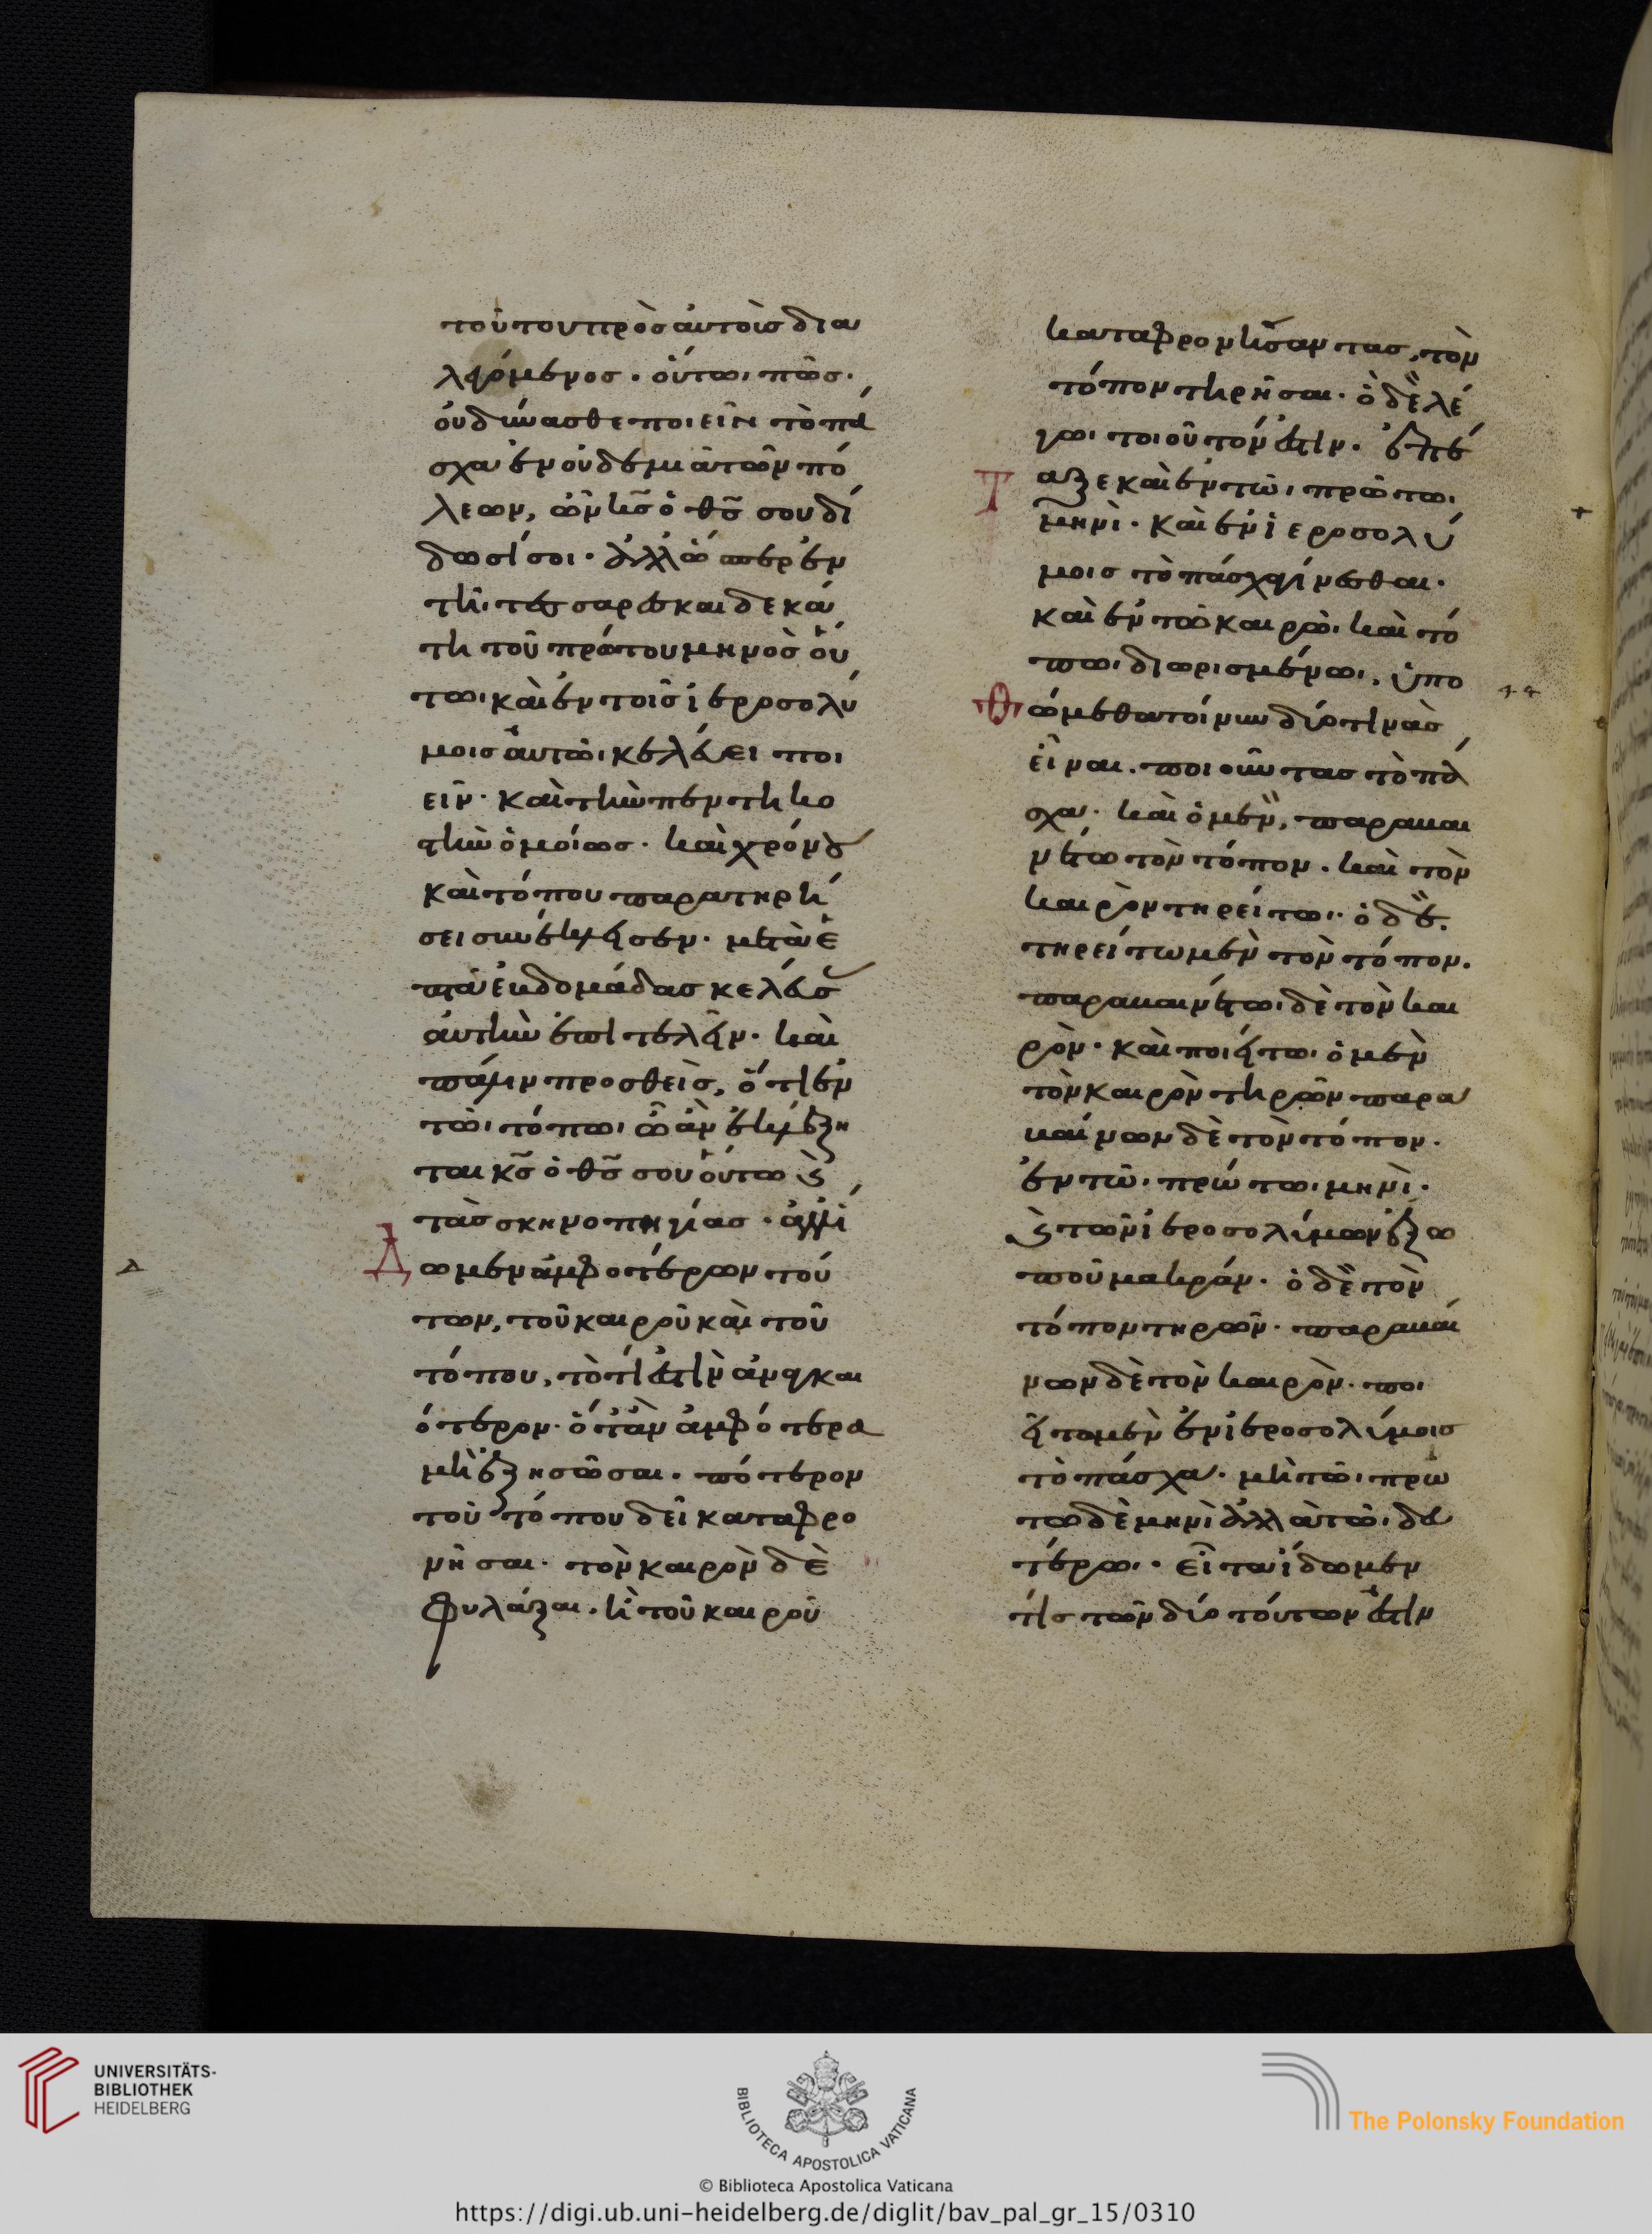 τούτου πρὸς αὐτοῖς δια
λεγόμενος. οὕτω πῶς.
οὐ δύνασθε ποιεῖν τὸ πά
σχα ἐν οὐδεμιᾷ τῶν πό
λεων, ὧν κ̅ς̅ ὁ θ̅ς̅ σου δί
δωσί σοι. ἀλλ' ὥσπερ ἐν
τῆ τεσσαρεσκαιδεκά
τη τοῦ πρώτου μηνὸς οὕ
τω καὶ ἐν τοῖς ἱεροσολύ
μοις αὐτὸ κελεύει ποι
εῖν. καὶ τὴν πεντηκο
στὴν ὁμοίως. καὶ χρόνου
καὶ τόπου παρατηρή
σει συνέκλεισεν. μετὰ ἑ
πτὰ ἑβδομάδας κελεύσας
αὐτὴν ἐπιτελεῖν. καὶ
πάλιν προσθεὶς, ὅτι ἐν
τῶ τόπω ὧ ἂν ἐκλέξη
ται κ̅ς̅ ὁ θ̅ς̅ σου οὕτω καὶ
τὰς σκηνοπηγίας. ἀφί
Δωμεν ἀμφοτέρων τού
των, τοῦ καιροῦ καὶ τοῦ
τόπου, τὸ τί ἐστὶν ἀναγκαι
ότερον. ὅταν ἀμφότερα
μὴ ἐξῆ σῶσαι. πότερον
τοῦ τόπου δεῖ καταφρο
νῆσαι. τὸν καιρὸν δὲ
φυλάξαι. ἢ τοῦ καιροῦ
καταφρονήσαντας, τὸν
τόπον τηρῆσαι. ὃ δὲ λέ
γω τοιοῦτόν ἐστιν. ἐπέ
Ταξε καὶ ἐν τῶ πρώτω
μηνὶ. καὶ ἐν ἱεροσολύ
μοις τὸ πάσχα γίνεσθαι.
καὶ ἐν τῶ καιρῶ καὶ τό
πω διωρισμένω. ὑπο
Θώμεθα τοίνυν δύο τινὰς
εἶναι. ποιοῦντας τὸ πά
σχα. καὶ ὁ μὲν, παραβαι
νέτω τὸν τόπον. καὶ τὸν
καιρὸν τηρείτω. ὁ δὲ.
τηρείτω μὲν τὸν τόπον.
παραβαινέτω δὲ τὸν και
ρὸν. καὶ ποιείτω ὁ μὲν
τὸν καιρὸν τηρῶν παρα
βαίνων δὲ τὸν τόπον.
ἐν τῶ πρώτω μηνὶ.
καὶ τῶν ἱεροσολύμων ἔξω
που μακράν. ὁ δὲ τὸν
τόπον τηρῶν. παραβαί
νων δὲ τὸν καιρὸν. ποι
είτω μὲν ἐν ἱεροσολύμοις
τὸ πάσχα. μὴ τῶ πρώ
τω δὲ μηνὶ ἀλλὰ τῶ δευ
τέρω. εἶτα ἴδωμεν
τίς τῶν δύο τούτων ἐστὶν
UNIVERSITÄTS-
BIBLIOTHEK
HEIDELBERG
BIBLIOTECA APOSTOLICA VATICANA
The Polonsky Foundation
© Biblioteca Apostolica Vaticana
https://digi.ub.uni-heidelberg.de/diglit/bav_pal_gr_15/0310